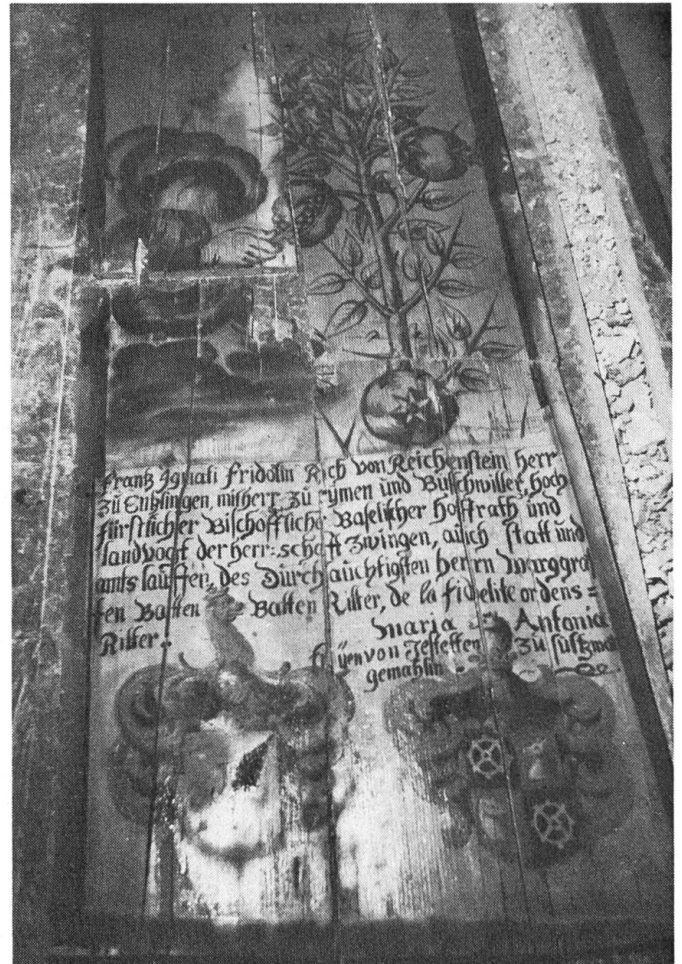 Frantz Ignati Fridolin Rich von Reichenstein herr
zů Entzlingen, mitherr zů rymen und Buschwiller, hoch
fürstlicher Bischofflicher Baselischer hoffrath und
landvogt der herr=schafft Zwingen, auch statt und
amts lauffen, des Durchlauchtigsten herrn marggraf
fen Baaden Baaden Ritter, de la fidelite ordens=
Ritter.
maria Antonia
von Jestetten zů
gemahlin